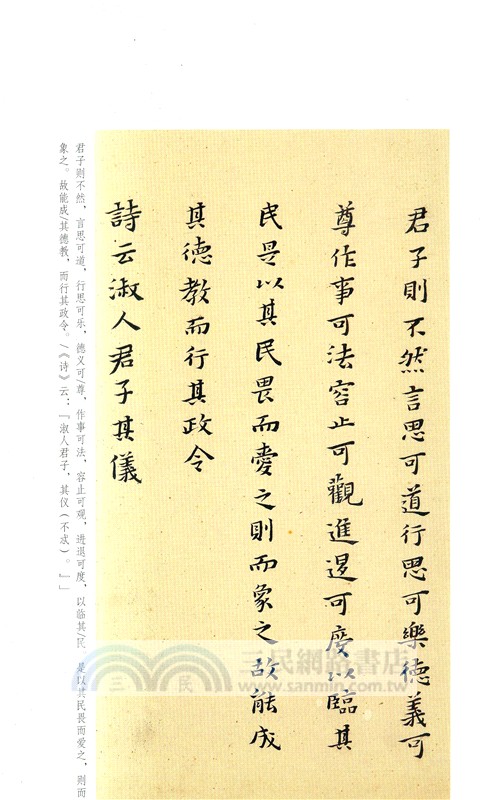 君子則不然言思可道行思可樂德義可
尊作事可法容止可觀進退可度以臨其
民是以其民畏而愛之則而象之故能成
其德教而行其政令
詩云淑人君子其儀
君子则不然，言思可道，行思可乐，德义可/尊，作事可法，容止可观，进退可度，以临其/民，是以其民畏而爱之，则而
象之。故能成/其德教，而行其政令。/《诗》云：「淑人君子，其仪（不忒）。」
三民網路書店
www.sanmin.com.tw
三
民